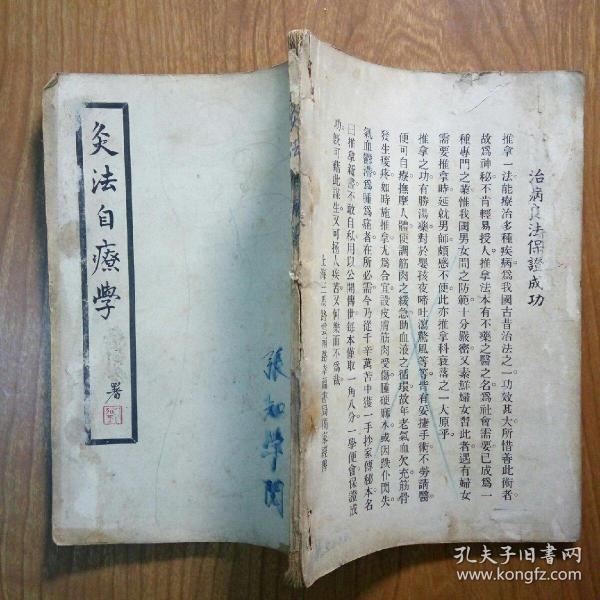 灸法自療學
署
張知學閱
治病良法保證成功
推拿一法能療治多種疾病爲我國古昔治法之一功效甚大所惜善此術者
故爲神秘不肯輕易授人推拿法本有不藥之醫之名爲社會需要已成爲一
種專門之業惟我國男女間之防範十分嚴密又素鮮婦女習此者遇有婦女
需要推拿時延就男師頗感不便此亦推拿科衰落之一大原乎
推拿之功有勝湯藥對於嬰孩夜啼吐瀉驚風等等皆有妥捷手術不勞請醫
便可自療撫摩人體使調筋肉之緩急助血液之循環故年老氣血欠充筋骨
發生痠疼如時施推拿尤爲合宜設皮膚筋肉受傷腫硬麻木或因跌仆閃失
氣血鬱滯爲腫爲痛者在所必需今乃從千辛萬苦中獲一手抄家傳秘本名
曰推拿新書不敢自私用以公開傳世每本僅取一角八分一學便會保證成
功旣可藉此謀生又可拯人疾苦又何樂而不爲哉
上海三馬路雲南路幸福書局楊家經傳
孔夫子旧書网
www.kongfz.com